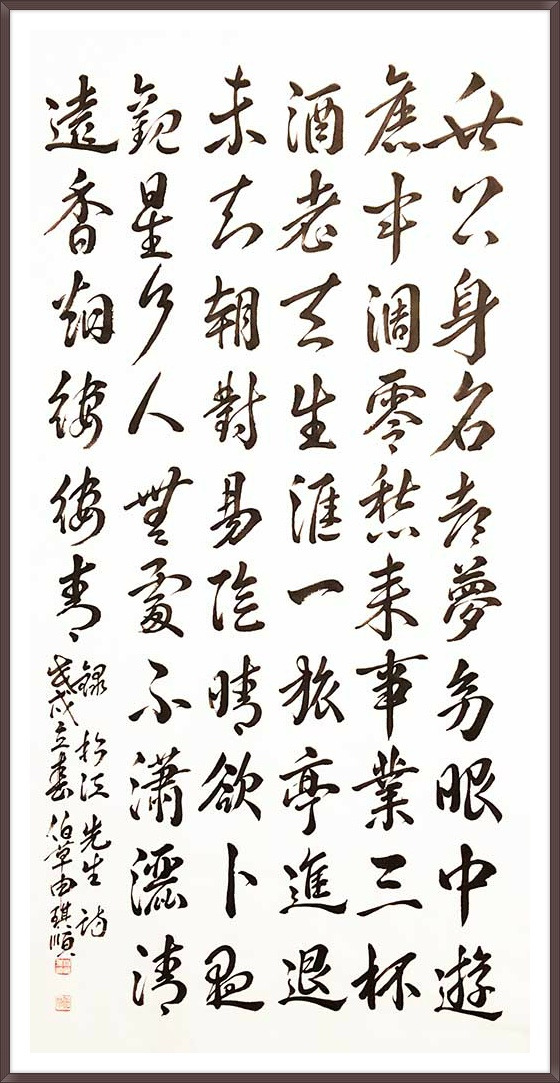 世身名都夢幻眼中遊
舊半凋零愁來事業三杯
酒老去生涯一旅亭進退
未知朝對易陰晴欲卜夜
觀星人無處不瀟灑清
遠香烟縷縷青
錄江先生詩
戊戌立春伯章由琪順